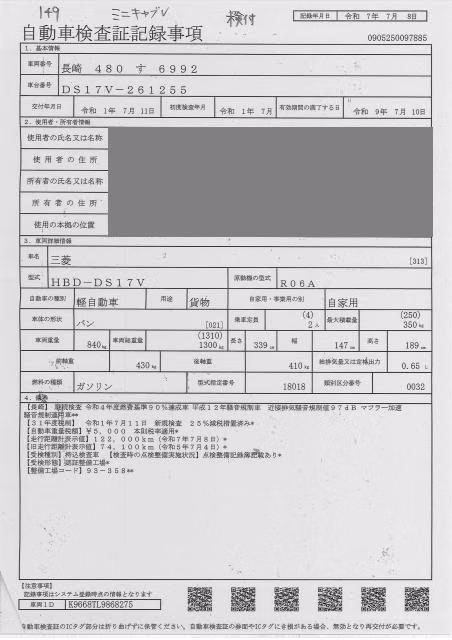 149 ミニキャブV 検付
記録年月日 令和 7年 7月 8日
自動車検査証記録事項 0905250097885
1. 基本情報
車両番号 長崎 480 す 6992
車台番号 DS17V-261255
交付年月日 令和 1年 7月 11日 初度検査年月 令和 1年 7月 有効期間の満了する日 令和 9年 7月 10日
2. 使用者・所有者情報
使用者の氏名又は名称
使用者の住所
所有者の氏名又は名称
所有者の住所
使用の本拠の位置
3. 車両詳細情報
車名 三菱 [313]
型式 HBD-DS17V 原動機の型式 R06A
自動車の種別 軽自動車 用途 貨物 自家用・事業用の別 自家用
車体の形状 バン [021] 乗車定員 (4) 2人 最大積載量 (250) 350kg
車両重量 840kg 車両総重量 (1310) 1300kg 長さ 339cm 幅 147cm 高さ 189cm
前軸重 430kg 後軸重 410kg 総排気量又は定格出力 0.65 L
燃料の種類 ガソリン 型式指定番号 18018 類別区分番号 0032
4. 備考
【長崎】 継続検査 令和4年度燃費基準90%達成車 平成12年騒音規制車 近接排気騒音規制値97dB マフラー加速
騒音規制適用車**
【31年度税制】 令和1年7月11日 新規検査 25%減税措置済み*
【自動車重量税額】¥5,000 本則税率適用*
【走行距離計表示値】122,000km(令和7年7月8日)*
【旧走行距離計表示値】74,100km(令和5年7月4日)*
【受検種別】持込検査車 【検査時の点検整備実施状況】点検整備記録簿記載あり*
【受検形態】認証整備工場*
【整備工場コード】93-358**
【注意事項】
記録事項はシステム登録時点の情報となります
車両ID K9668TL9868275
自動車検査証のICタグ部分は折り曲げずに保管ください。自動車検査証の券面やICタグにき損がある場合、無効となり再交付が必要です。